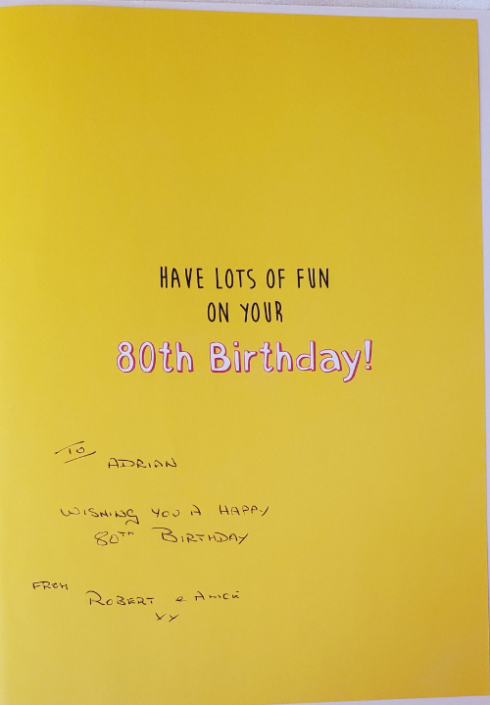 HAVE LOTS OF FUN
ON YOUR
80th Birthday!
TO
ADRIAN
WISHING YOU A HAPPY
80TH BIRTHDAY
FROM
ROBERT &
XX